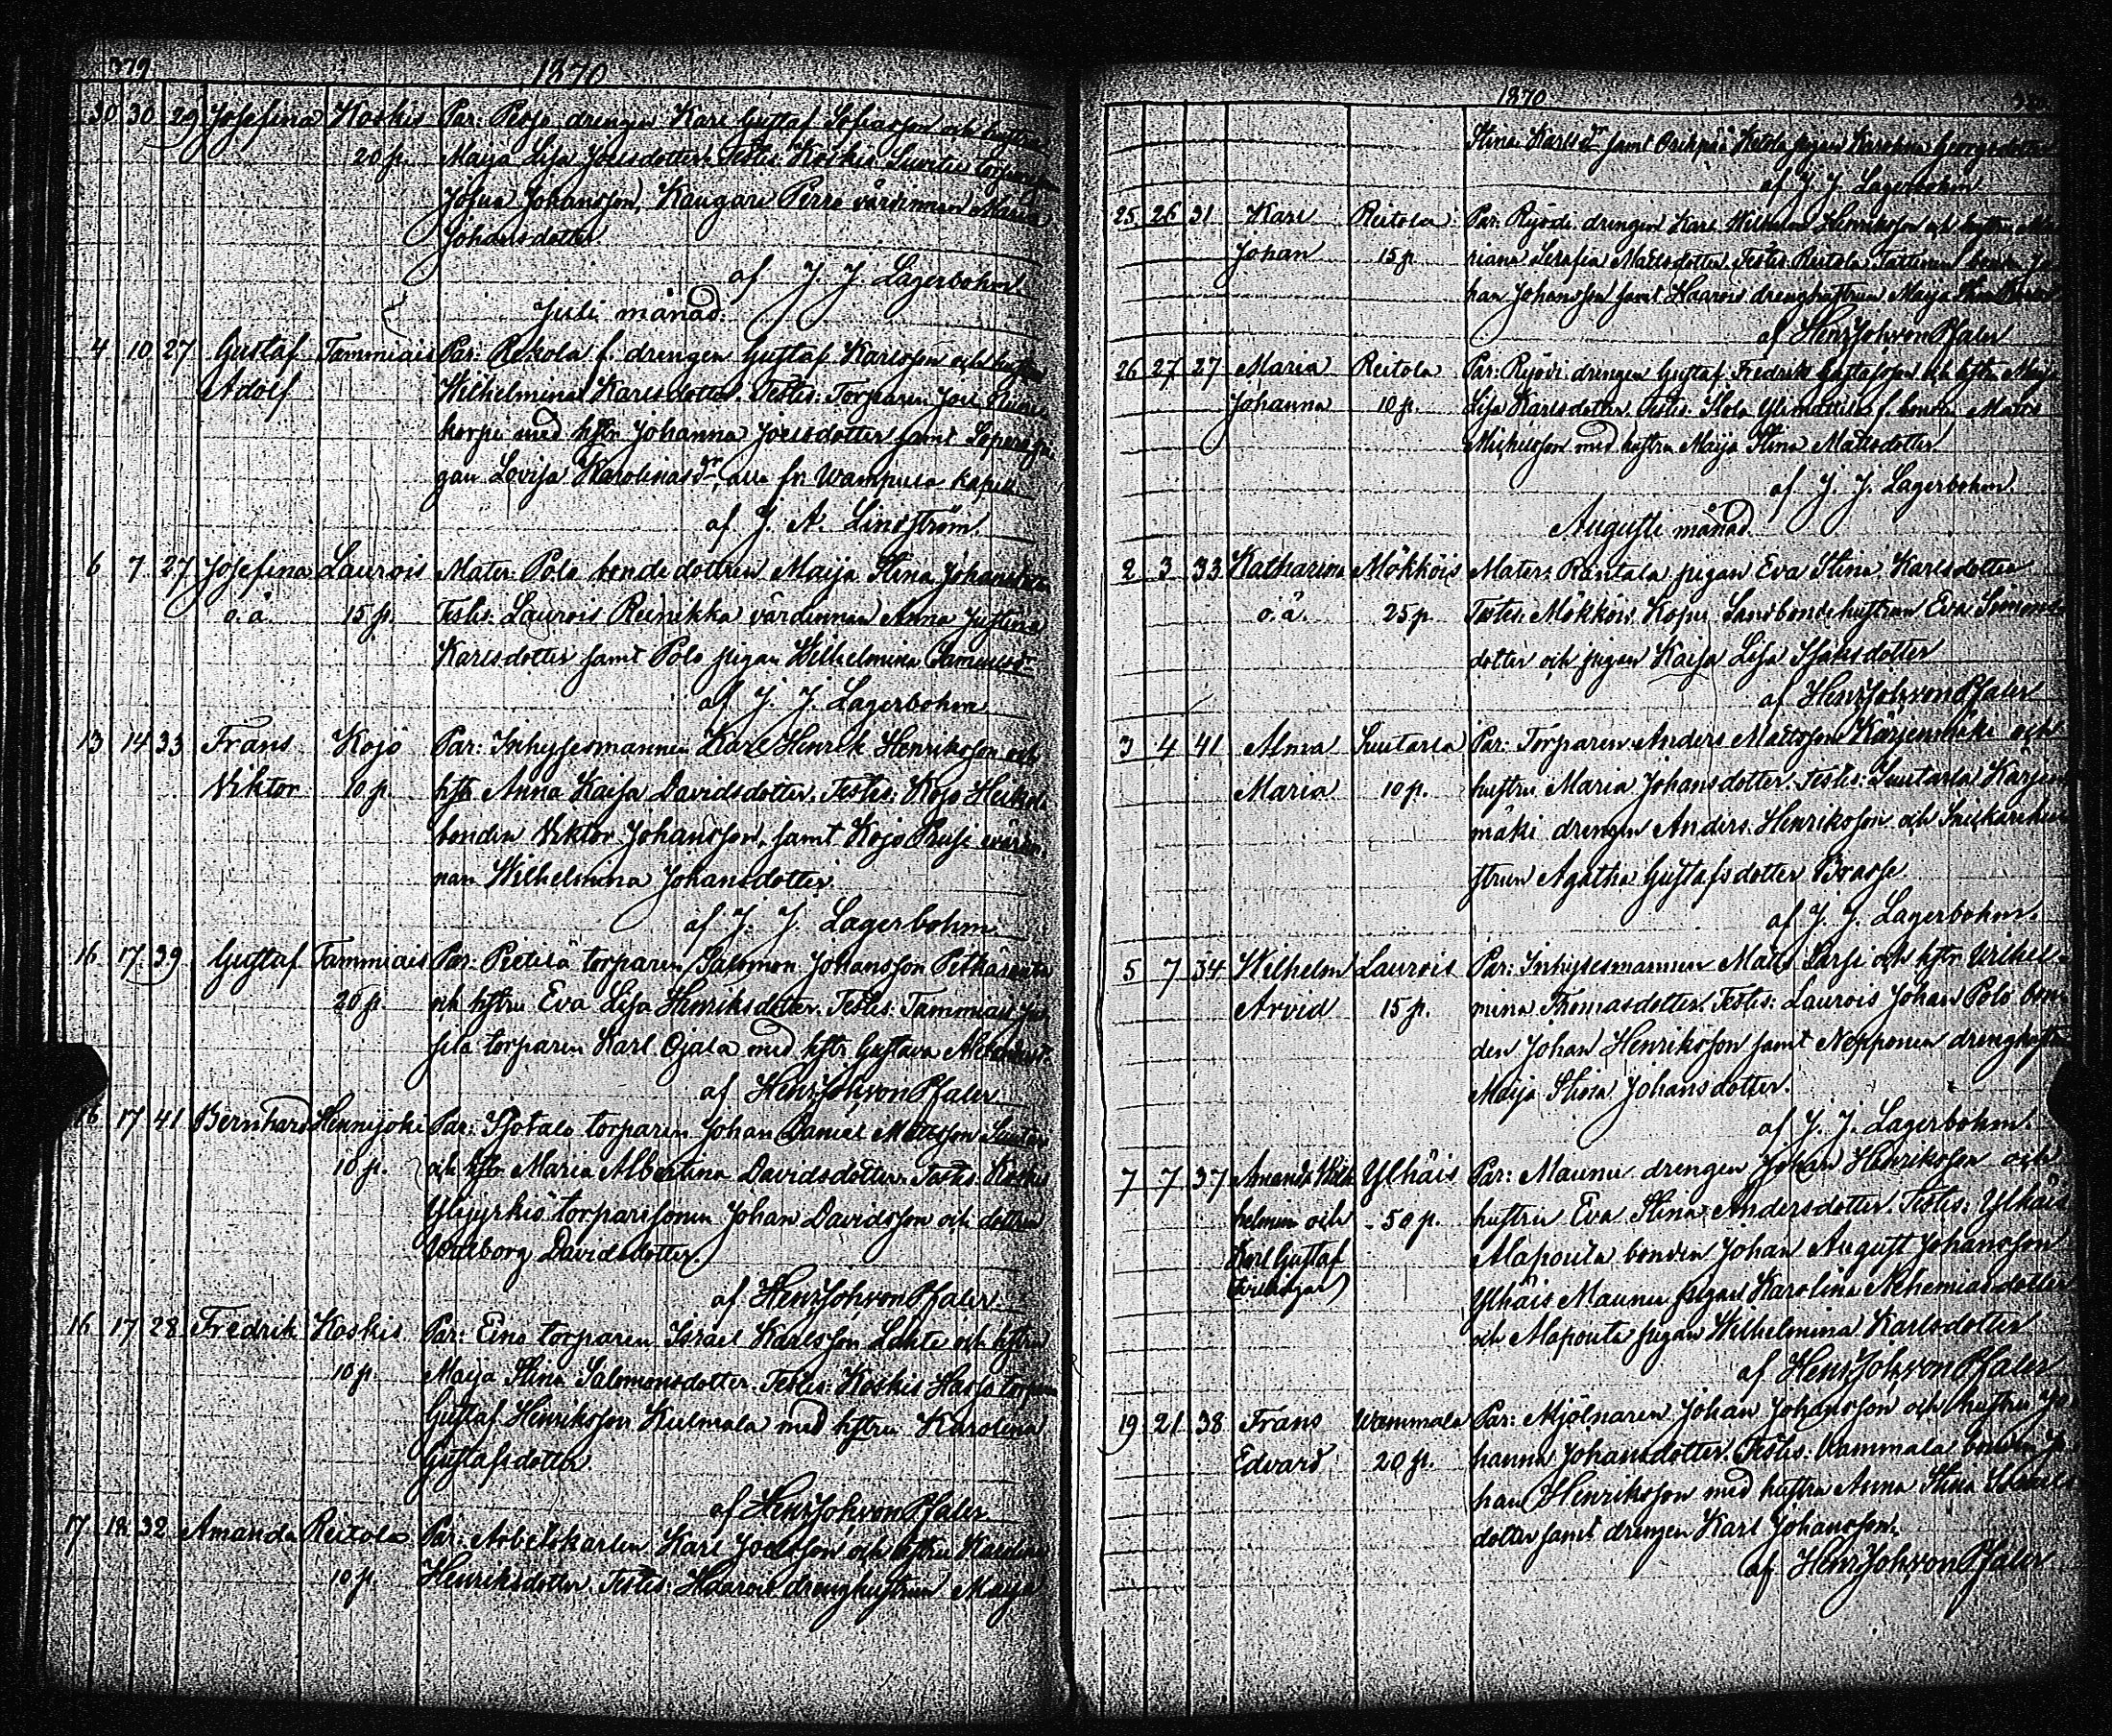 379.
1870
30 30 29 Josefina Koskis Par: Perho drengen Karl Gustaf Sofiasson och hustru
20 p. Maija Lisa Joelsdotter. Testes: Koskis Suutis torparen
Josua Johansson, Kaugari Perra värdinnan Maria
Johansdotter
af J. J. Lagerbohm.
Juli månad.
4 10 27 Gustaf Tammiais Par: Rekola f. drengen Gustaf Karlsson och hustru
Adolf Wilhelmina Karlsdotter. Testes: Torparen Joel
korpi med hstr Johanna Joelsdotter samt
gan Lovisa Karolinasdr, alla fr Wampula kapell.
af J. A. Lindström.
6 7 27 Josefina Laurois Mater: Polo bonde dottren Maija Stina Johansdotter
o. ä. 15 p. Testes: Laurois Reinikka värdinnan Anna Justina
Karlsdotter samt Polo pigan Wilhelmina Samuelsdr
af J. J. Lagerbohm
13 14 33 Frans Kojo Par: Inhysesmannen Karl Henrik Henriksson och
Viktor 10 p. hstr Anna Kaisa Davidsdotter. Testes: Kojo Heikola
bonden Viktor Johansson, samt Kojo Prusi värdin-
nan Wilhelmina Johansdotter.
af J. J. Lagerbohm
16 17 39 Gustaf Tammiais Par: Pietilä torparen Salomon Johansson Pitkäranta
20 p. och hstru Eva Lisa Henriksdotter. Testes: Tammiais Jus-
sila torparen Karl Ojala med hstr Gustava
af Henr Joh von Pfaler
16 17 41 Bernhard Hennijoki Par: torparen Johan Daniel Mattsson
10 p. och hstr Maria Albertina Davidsdotter. Testes: Koskis
Ylijyrkiö torparesonen Johan Davidsson och dottren
Walborg Davidsdotter.
af Henr Joh von Pfaler.
16 17 28 Fredrik Koskis Par: Eino torparen Israel Karlsson Lähte och hstru
10 p. Maija Stina Salomonsdotter. Testes: Koskis torparen
Gustaf Henriksson Kulmala med hstru Karolina
Gustafsdotter
af Henr Joh von Pfaler
17 18 32 Amanda Reitola Par: Arbetskarlen Karl Joelsson och hstru Karolina
10 p. Henriksdotter. Testes: Haarois drenghustrun Maija
1870
Stina Karlsdr samt Orihpää Ketola pigan Karolina Georgsdotter
af J. J. Lagerbohm
25 26 31 Karl Reitola Par: Ryödi drengen Karl Wilhelm Henriksson och hustru Ma-
Johan 15 p. riana Serafia Mattsdotter. Testes: Reitola Tattinen bonden Jo-
han Johansson samt Haarois drenghustrun Maija Stina
af Henr Joh von Pfaler
26 27 27 Maria Reitola Par: Ryödi drengen Gustaf Fredrik Gustafsson och hstru Maija
Johanna 10 p. Lisa Karlsdotter. Testes: Ilola Ylimattila f. bonden Matts
Michelsson med hustru Maija Stina Mattsdotter.
af J. J. Lagerbohm.
Augusti månad.
2 3 33 Katharina Mökköis Mater: Rantala pigan Eva Stina Karlsdotter
o. ä. 25 p. Testes: Mökköis Kopu Landbonde hustrun Eva Simons-
dotter och pigan Kaisa Lisa Isaksdotter
af Henr Joh von Pfaler
3 4 41 Alma Suutarla Par: Torparen Anders Mattsson Karjenmäki och
Maria 10 p. hustru Maria Johansdotter. Testes: Suutarla Karjen-
mäki drengen Anders Henriksson och Snickarehu-
strun Agatha Gustafsdotter Braxse
af J. J. Lagerbohm.
5 7 34 Wilhelm Laurois Par: Inhysesmannen Matts Larsi och hstr Wilhel-
Arvid 15 p. mina Thomasdotter. Testes: Laurois Johan Polo bon-
den Johan Henriksson samt Nepponen drenghustru
Maija Stina Johansdotter.
af J. J. Lagerbohm.
7 7 37 Amanda Wil- Ylhäis Par: Maunu drengen Johan Henriksson och
helmina och - 50 p. hustru Eva Stina Andersdotter. Testes: Ylhäis
Karl Gustaf Alapouta bonden Johan August Johansson
(tvillingar) Ylhäis Maunu pigan Karolina Nehemiasdotter
och Alapouta pigan Wilhelmina Karlsdotter
af Henr Joh von Pfaler
19 21 38 Frans Wammala Par: Mjölnaren Johan Johansson och hustru Jo-
Edvard 20 p. hanna Johansdotter. Testes: Wammala bonden Jo-
han Henriksson med hustru Anna Stina
dotter samt drengen Karl Johansson.
af Henr Joh von Pfaler